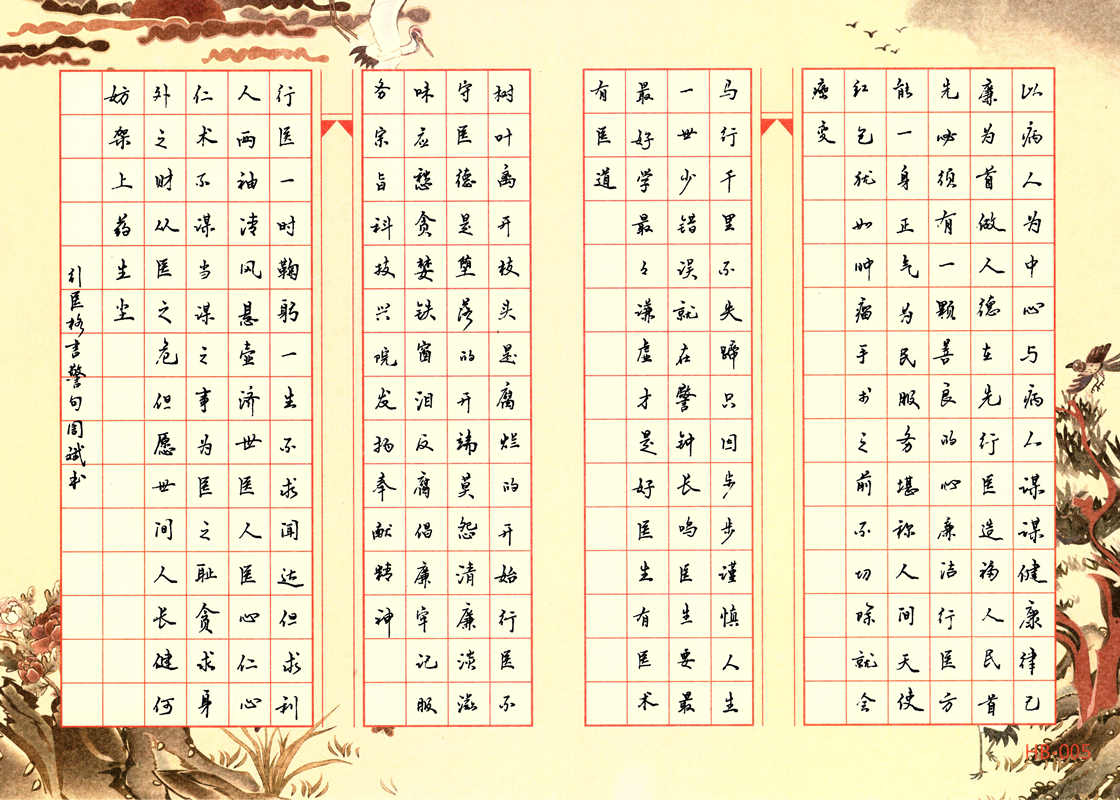 以病人为中心与病人谋谋健康律己
廉为首做人德在先行医造福人民首
先必须有一颗善良的心廉洁行医方
能一身正气为民服务堪称人间天使
红包犹如肿瘤手书之前不切除就会
癌变
马行千里不失蹄只因步步谨慎人生
一世少错误就在警钟长鸣医生要最
最好学最々谦虚才是好医生有医术
有医道
树叶离开枝头是腐烂的开始行医不
守医德是堕落的开端莫怨清廉淡滋
味应愁贪婪铁窗泪反腐倡廉牢记服
务宗旨科技兴院发扬奉献精神
行医一时鞠躬一生不求闻达但求利
人两袖清风悬壶济世医人医心仁心
仁术不谋当谋之事为医之耻贪求身
外之财从医之危但愿世间人长健何
妨架上药生尘
引医格言警句周斌书
HB-005